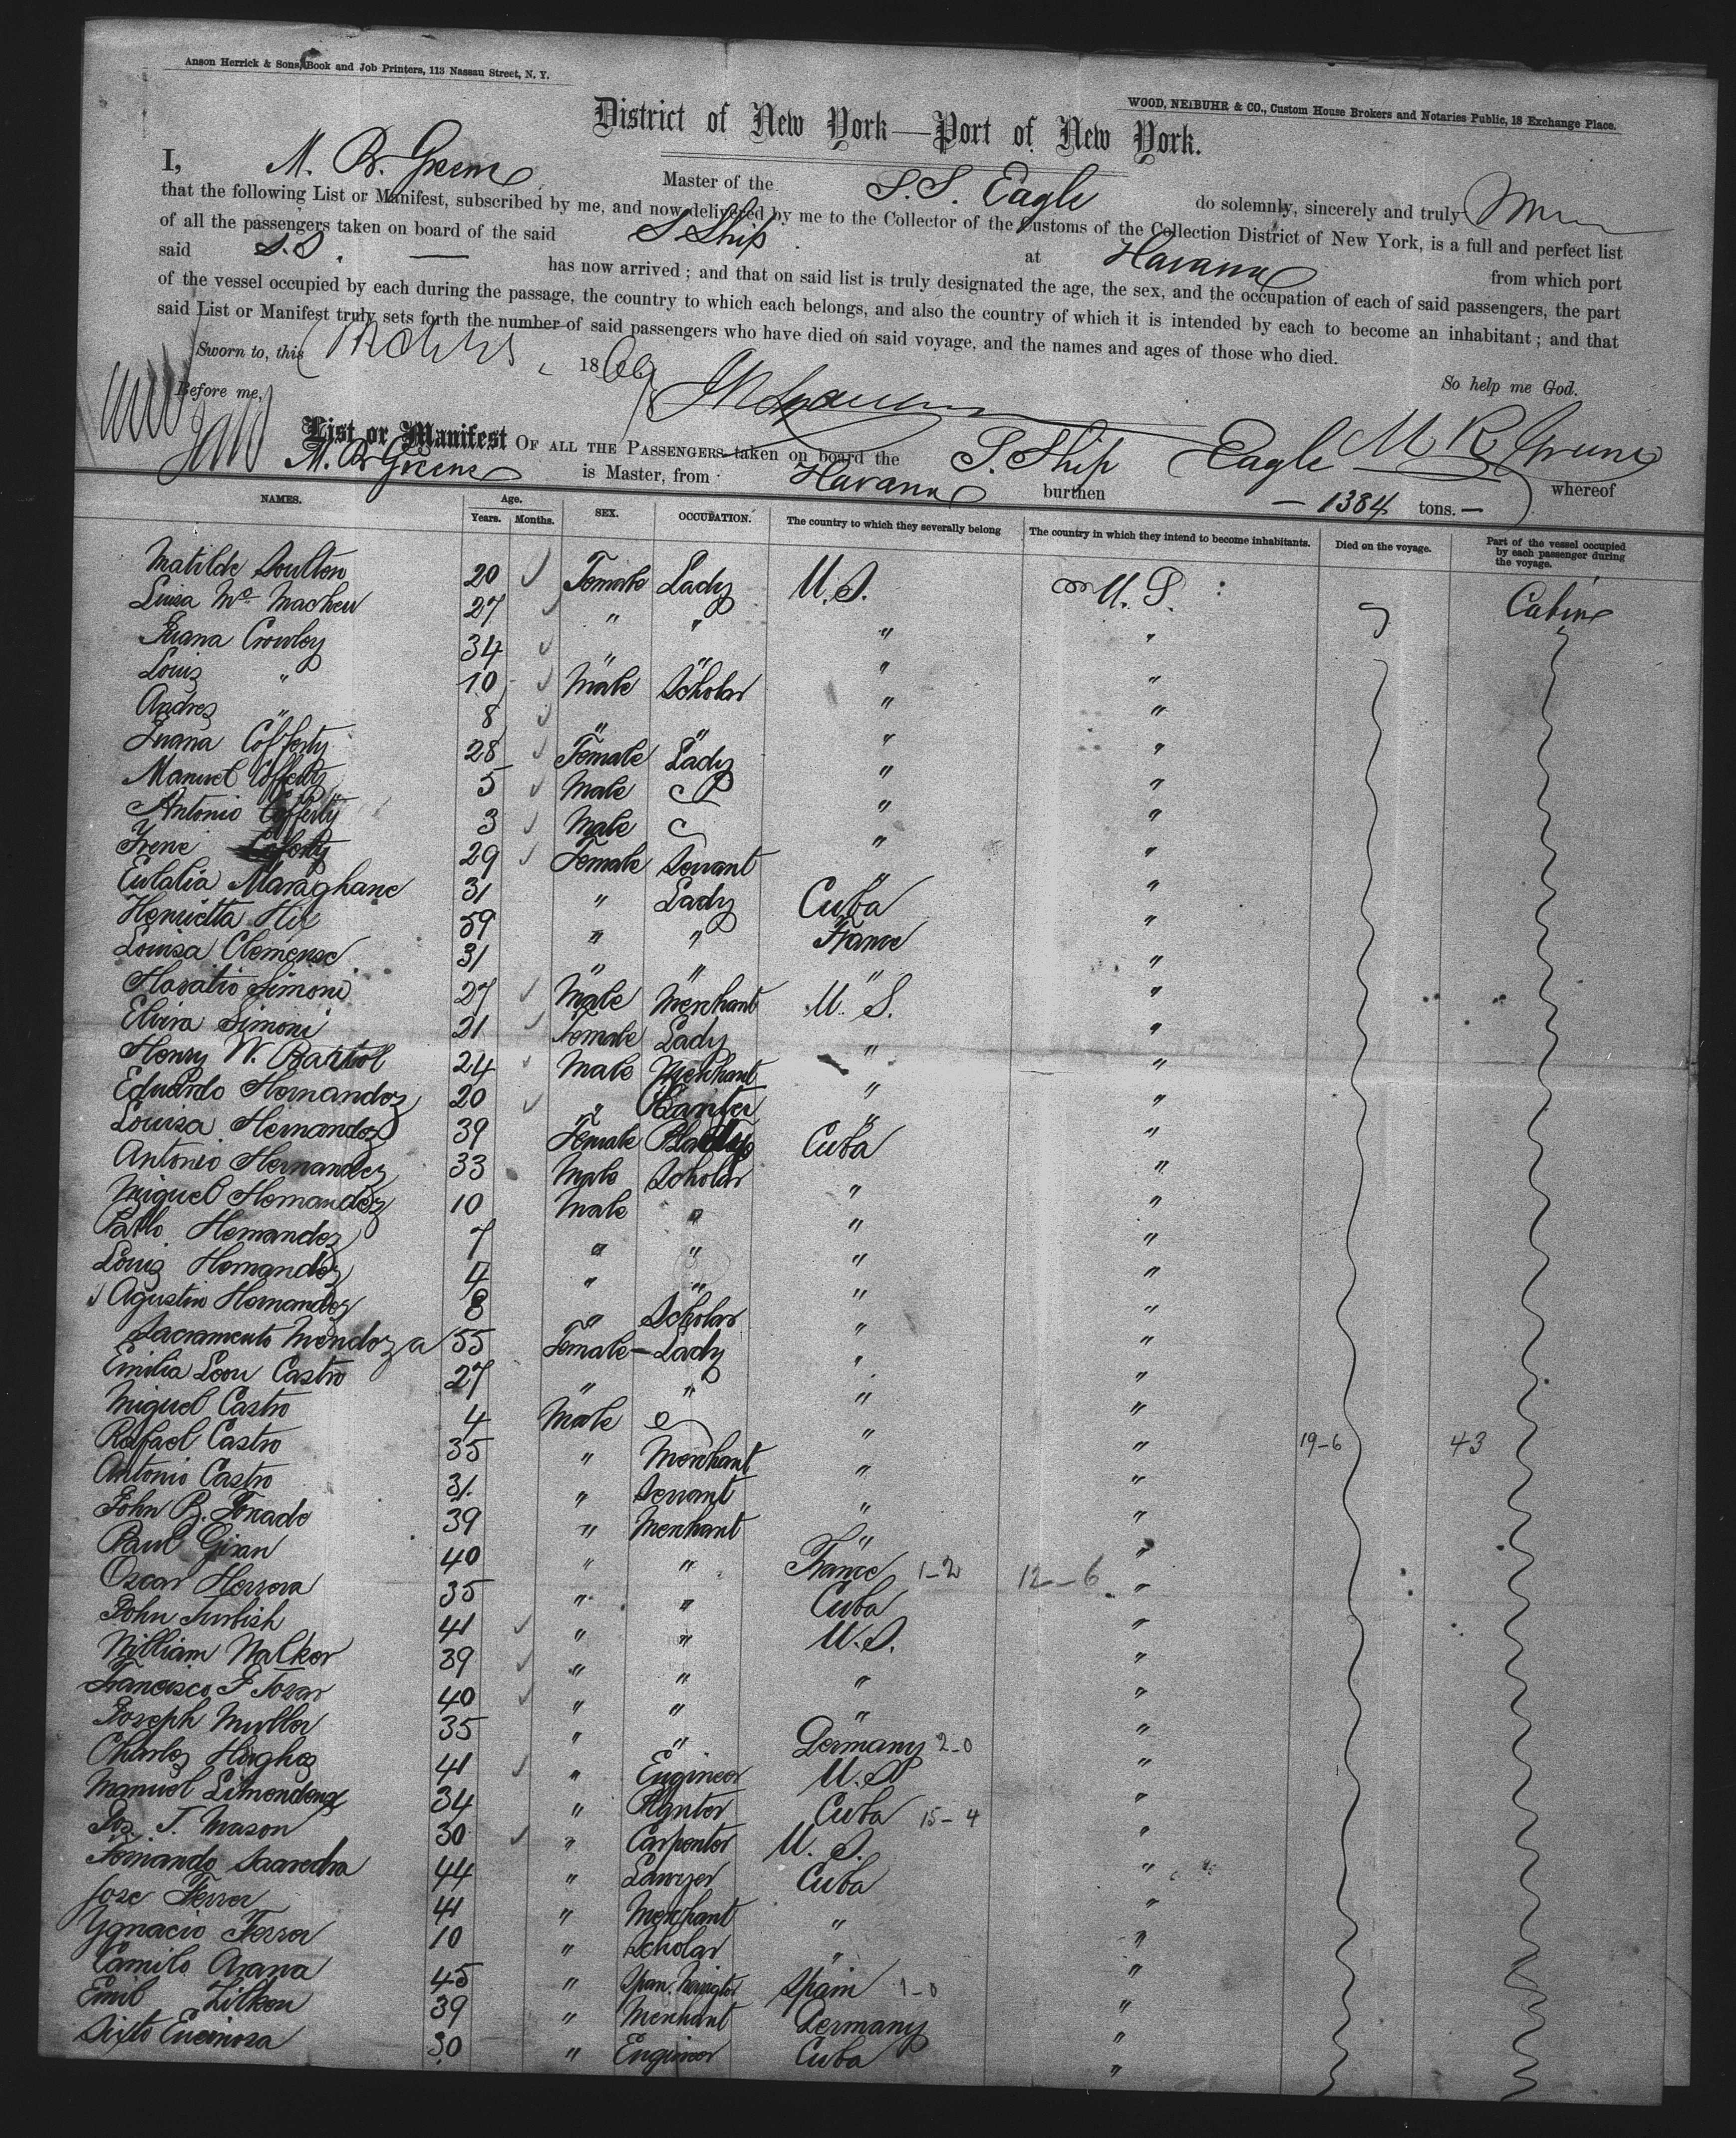 Anson Herrick & Sons, Book and Job Printers, 113 Nassau Street, N. Y.
WOOD, NEIBUHR & CO., Custom House Brokers and Notaries Public, 18 Exchange Place.
District of New York—Port of New York.
I, M. R. Greene Master of the S.S. Eagle do solemnly, sincerely and truly
that the following List or Manifest, subscribed by me, and now delivered by me to the Collector of the Customs of the Collection District of New York, is a full and perfect list
of all the passengers taken on board of the said S Ship at Havana from which port
said S.S. has now arrived; and that on said list is truly designated the age, the sex, and the occupation of each of said passengers, the part
of the vessel occupied by each during the passage, the country to which each belongs, and also the country of which it is intended by each to become an inhabitant; and that
said List or Manifest truly sets forth the number of said passengers who have died on said voyage, and the names and ages of those who died.
So help me God.
Sworn to, this 1869
Before me, M R Greene
List or Manifest OF ALL THE PASSENGERS taken on board the S. Ship Eagle whereof
M. R Greene is Master, from Havana burthen — 1384 tons. —
NAMES. Age. Years. Months. SEX. OCCUPATION. The country to which they severally belong The country in which they intend to become inhabitants. Died on the voyage. Part of the vessel occupied by each passenger during the voyage.
Matilde Soulton 20 Female Lady U.S. U.S. Cabin
Luisa 27 " " " "
Juana Crowley 34 " " " "
Louis " 10 Male Scholar " "
Andres " 8 " " " "
Juana Cofferty 28 Female Lady " "
Manuel Cofferty 5 Male " "
Antonio Cofferty 3 Male " "
Yrene 29 Female Servant " "
Eulalia Maraghane 31 " Lady Cuba "
Henrietta 59 " " France "
Louisa Clemense 31 " " " "
Horatio Simoni 27 Male Merchant U.S. "
Elvira Simoni 21 Female Lady " "
Henry W. Bartol 24 Male Merchant " "
Eduardo Hernandez 20 " Planter " "
Louisa Hernandez 39 Female Cuba "
Antonio Hernandez 33 Male Scholar " "
Miguel Hernandez 10 Male " " "
Pablo Hernandez 7 " " " "
Louis Hernandez 4 " " " "
Agustin Hernandez 8 " Scholar " "
Sacramento Mendoza 55 Female — Lady " "
Emilia Leon Castro 27 " " " "
Miguel Castro 4 Male " "
Rafael Castro 35 " Merchant " " 19-6 43
Antonio Castro 31 " Servant " "
John B. 39 " Merchant " "
Paul Giran 40 " " France 1-2 12-6 "
Oscar Herrera 35 " " Cuba "
John Furbish 41 " " U.S. "
William Walker 39 " " " "
Francisco F Tovar 40 " " " "
Joseph Muller 35 " " Germany 2-0 "
Charles Hughes 41 " Engineer U.S. "
Manuel 34 " Planter Cuba 15-4 "
Jos. T. Mason 30 " Carpenter U.S. "
Fernando Saavedra 44 " Lawyer Cuba "
Jose Ferrer 41 " Merchant " "
Ygnacio Ferrer 10 " Scholar " "
Camilo Arana 45 " Spain 1-0 "
Emil Lilken 39 " Merchant Germany "
Sixto Encinosa 30 " Engineer Cuba "